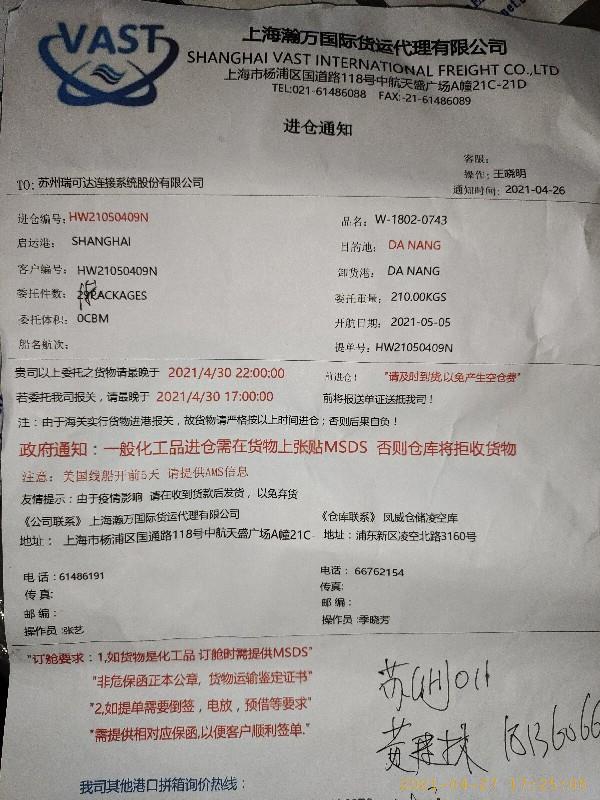 VAST
上海瀚万国际货运代理有限公司
SHANGHAI VAST INTERNATIONAL FREIGHT CO.,LTD
上海市杨浦区国道路118号中航天盛广场A幢21C-21D
TEL:021-61486088 FAX:-21-61486089
进仓通知
客服:
操作: 王晓明
TO: 苏州瑞可达连接系统股份有限公司
通知时间: 2021-04-26
进仓编号: HW21050409N 品名: W-1802-0743
启运港: SHANGHAI 目的地: DA NANG
客户编号: HW21050409N 卸货港: DA NANG
委托件数: PACKAGES 委托重量: 210.00KGS
委托体积: 0CBM 开航日期: 2021-05-05
船名航次: 提单号: HW21050409N
贵司以上委托之货物请最晚于 2021/4/30 22:00:00 前进仓! "请及时到货,以免产生空仓费"
若委托我司报关,请最晚于 2021/4/30 17:00:00 前将报送单证送抵我司!
注:由于海关实行货物进港报关,故货物请严格按以上时间进仓;否则后果自负!
政府通知:一般化工品进仓需在货物上张贴MSDS 否则仓库将拒收货物
注意: 美国线船开前5天 请提供AMS信息
友情提示:由于疫情影响 请在收到货款后发货,以免弃货
《公司联系》上海瀚万国际货运代理有限公司 《仓库联系》 凤威仓储凌空库
地址: 上海市杨浦区国通路118号中航天盛广场A幢21C- 地址: 浦东新区凌空北路3160号
电话:61486191 电话: 66762154
传真: 传真:
邮编: 邮编:
操作员:张艺 操作员:季晓芳
"订舱要求:1,如货物是化工品 订舱时需提供MSDS"
"非危保函正本公章, 货物运输鉴定证书"
"2,如提单需要倒签,电放,预借等要求"
"需提供相对应保函,以便客户顺利签单."
苏州011
我司其他港口拼箱询价热线:
2021-04-27 17:25:05